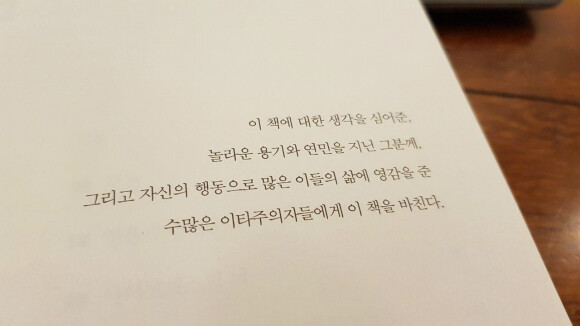 이 책에 대한 생각을 심어준,
놀라운 용기와 연민을 지닌 그분께,
그리고 자신의 행동으로 많은 이들의 삶에 영감을 준
수많은 이타주의자들에게 이 책을 바친다.